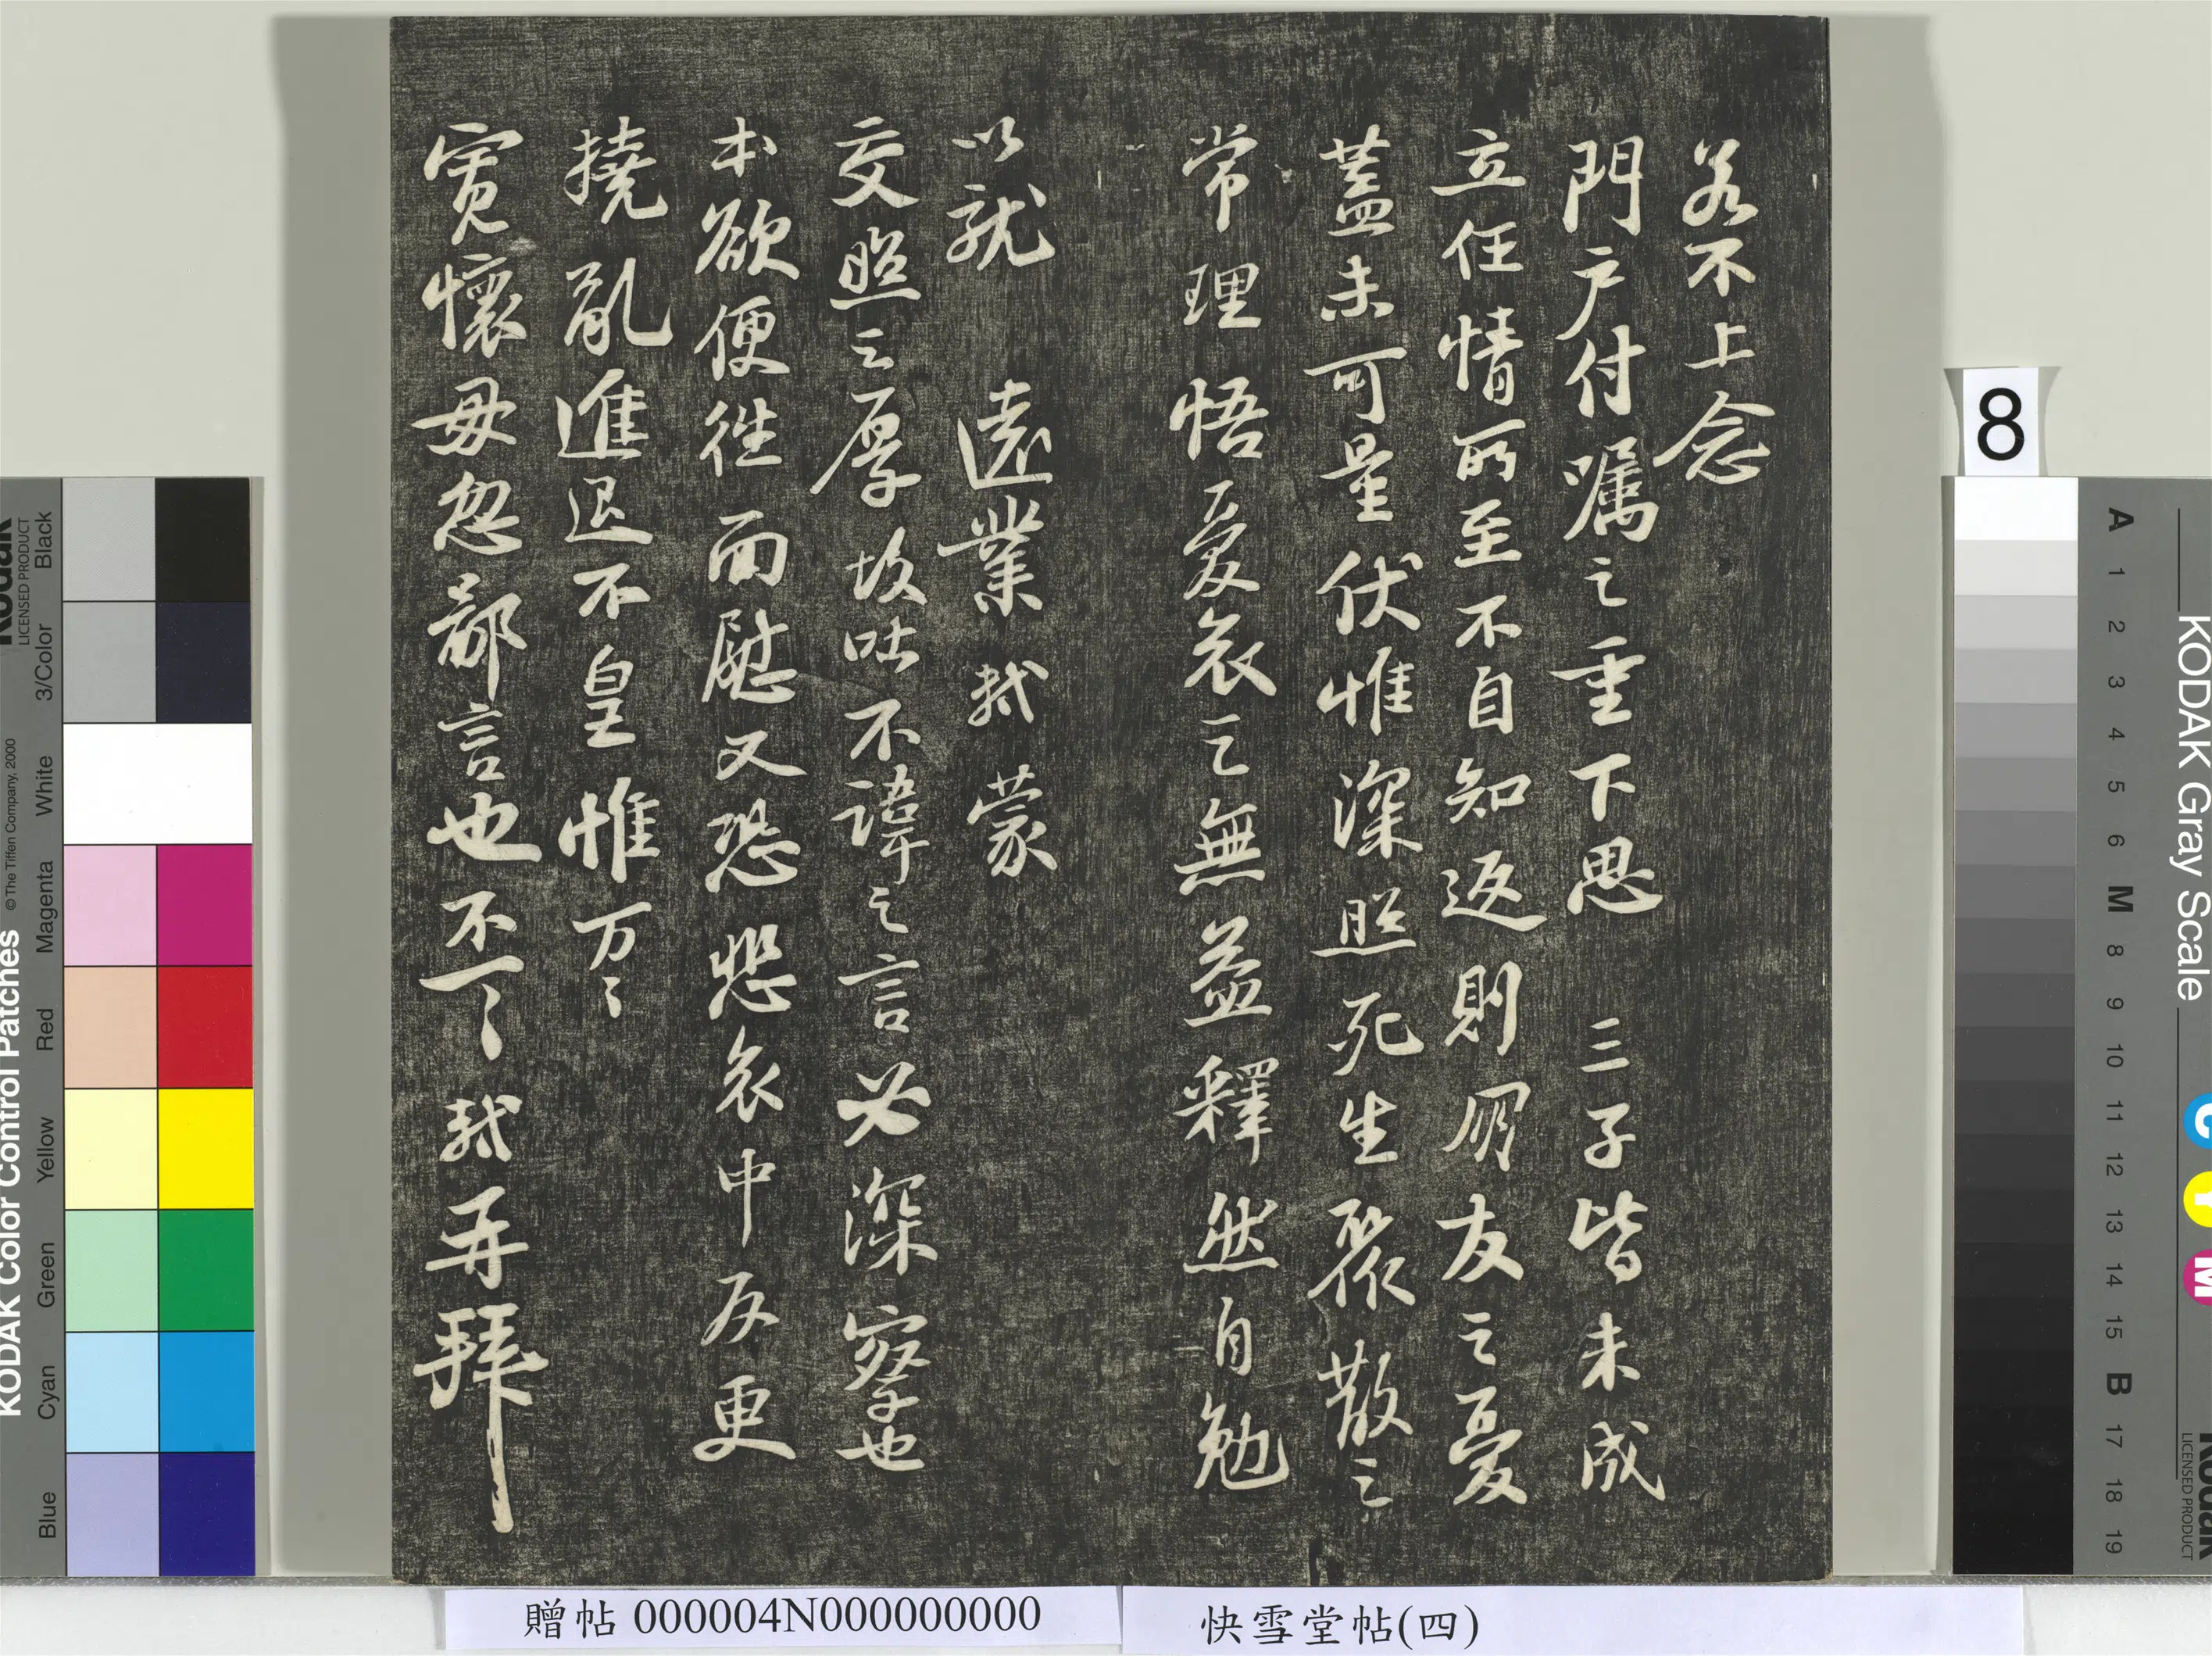 若不上念
門戶付囑之重下思三子皆未成
立任情所至不自知返則朋友之憂
蓋未可量伏惟深照死生聚散之
常理悟憂哀之無益釋然自勉
以就遠業軾蒙
交照之厚故吐不諱之言必深察也
本欲便往面慰又恐悲哀中反更
撓亂進退不皇惟万〻
寬懷毋忽鄙言也不一〻軾再拜
8
KODAK Gray Scale
A 1 2 3 4 5 6 M 8 9 10 11 12 13 14 15 B 17 18 19
C Y M
Kodak
LICENSED PRODUCT
KODAK Color Control Patches
© The Tiffen Company, 2000
Kodak
LICENSED PRODUCT
Blue Cyan Green Yellow Red Magenta White 3/Color Black
贈帖 000004N000000000
快雪堂帖(四)